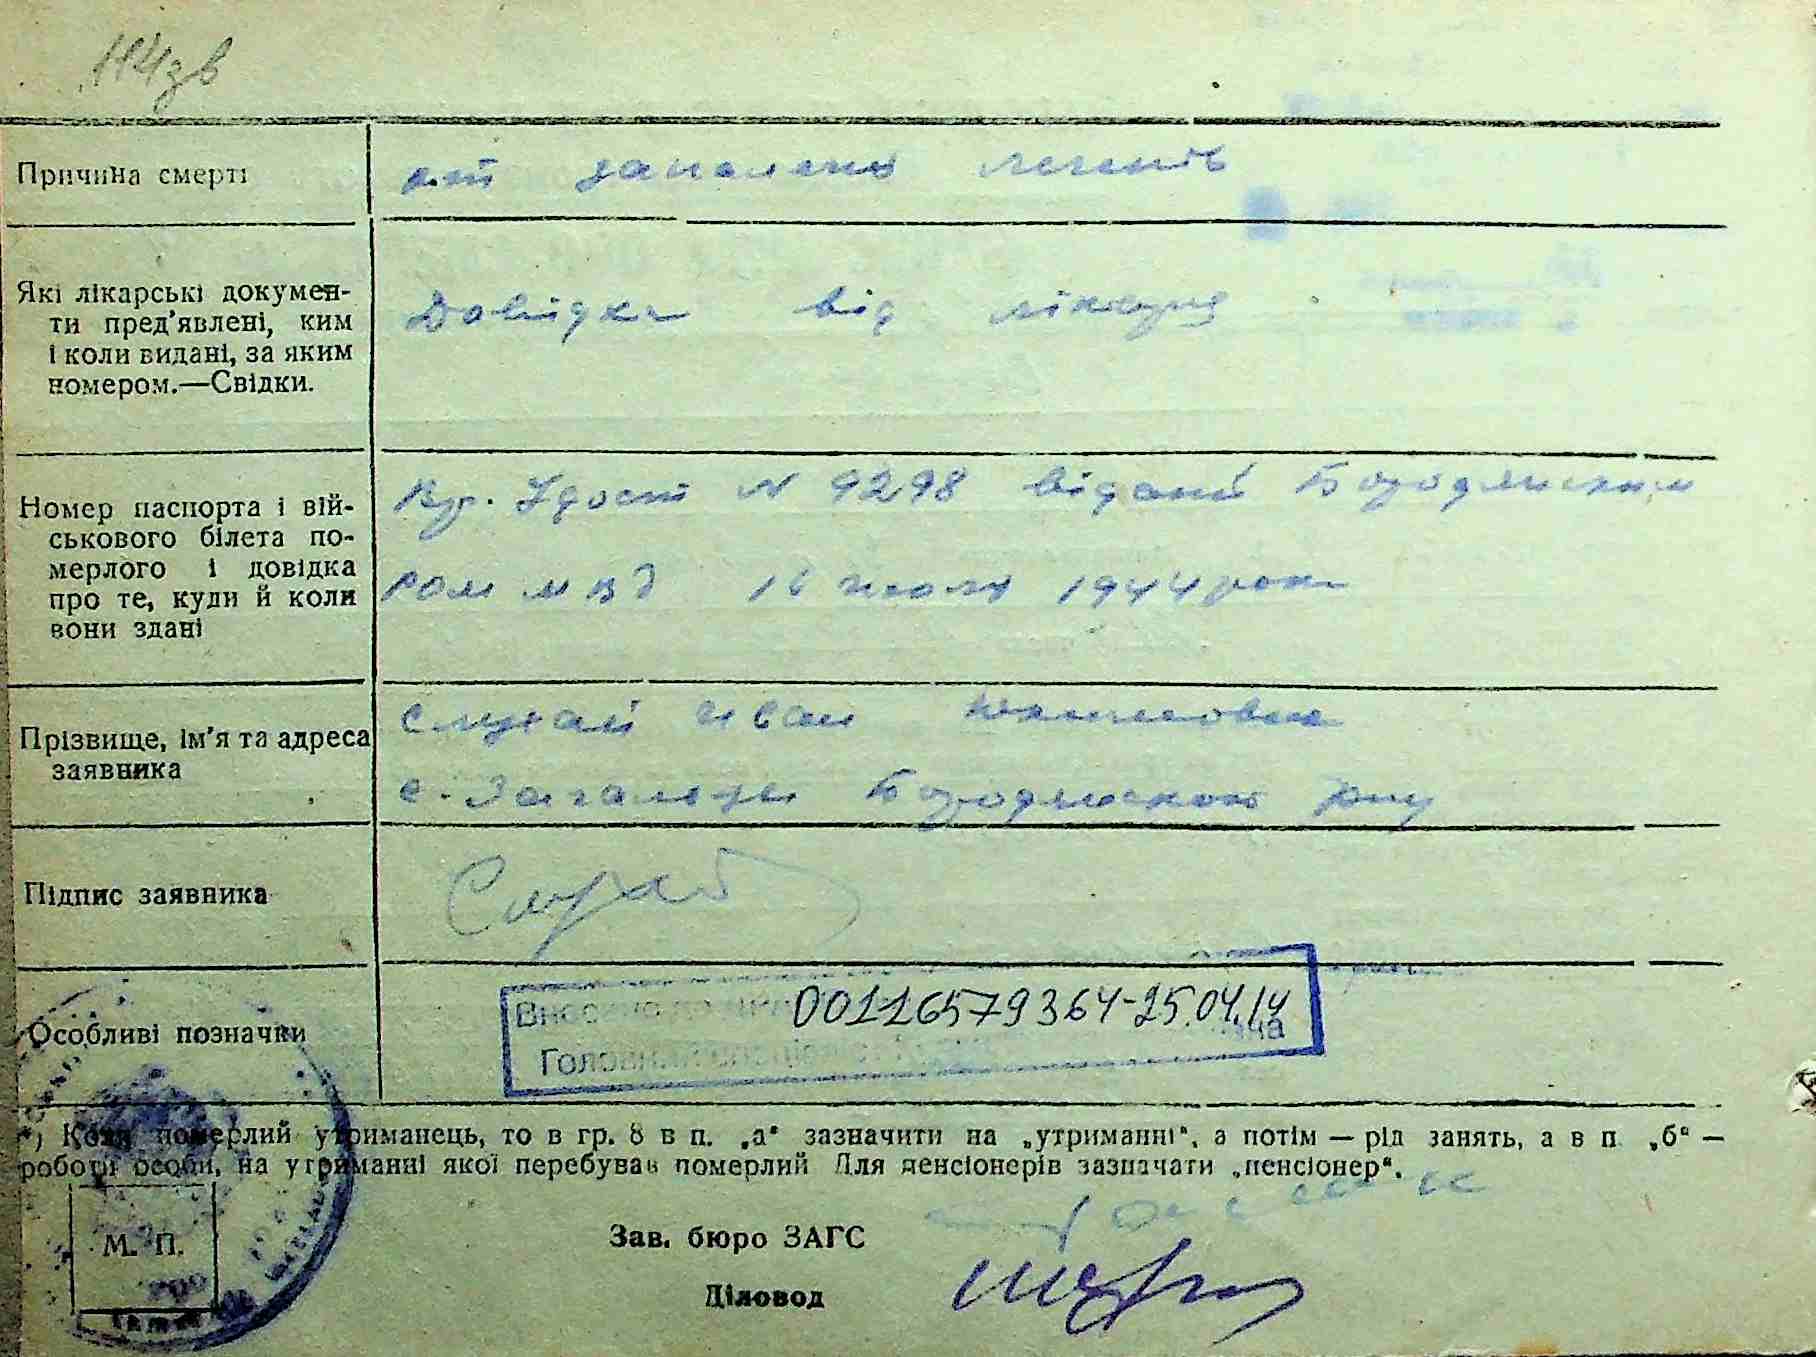 114зв
Причина смерті
від запаления легенів
Які лікарські докумен-
ти пред'явлені, ким
і коли видані, за яким
номером.—Свідки.
Довідка від лікаря
Номер паспорта і вій-
ськового білета по-
мерлого і довідка
про те, куди й коли
вони здані
Вр. Удост N 9298 віданй Бородянским
РОМ МВД 16 июля 1944 року
Прізвище, ім'я та адреса
заявника
Слухай Иван
с. Загальцы Бородянского р-ну
Підпис заявника
Особливі позначки
Внесено до ДРАЦ 00116579364-25.04.14
Головний спеціаліст
*) Коли померлий утриманець, то в гр. 8 в п. „а" зазначити на „утриманні", а потім — рід занять, а в п. „б" —
роботи особи, на утриманні якої перебував померлий Для пенсіонерів зазначати „пенсіонер".
М. П.
Зав. бюро ЗАГС
Діловод